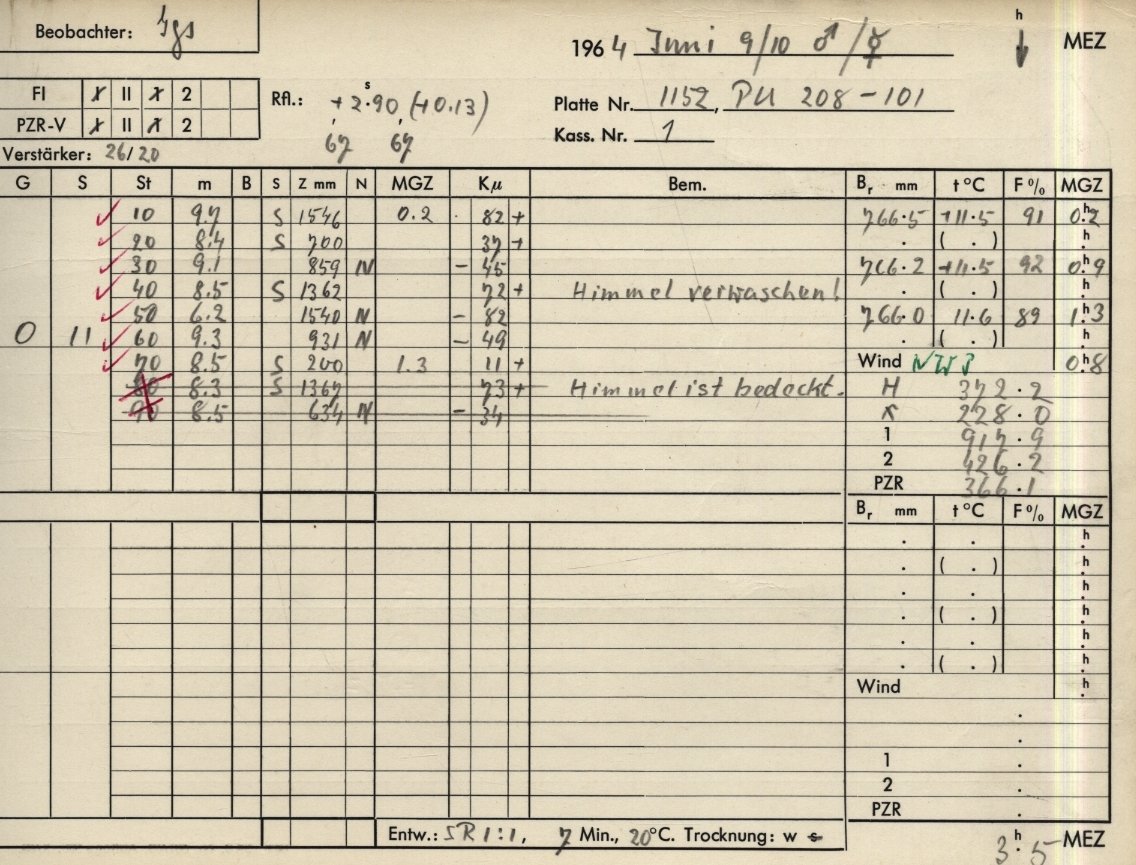 Beobachter: Igs
1964 Juni 9/10 ♂/☿ h MEZ
FI I II 1 2
PZR-V I II 1 2
Rfl.: +2s.90 (+0.13)
67 67
Platte Nr. 1152, PU 208-101
Kass. Nr. 1
Verstärker: 26/20
G S St m B S Z mm N MGZ Kμ Bem. Br mm t °C F % MGZ
10 9.7 S 1546 0.2 82 + 766.5 +11.5 91 0h.2
20 8.4 S 700 37 + . ( . ) h.
30 9.1 859 N - 45 766.2 +11.5 92 0h.9
40 8.5 S 1362 72 + Himmel verwaschen! . ( . ) h.
50 6.2 1540 N - 82 766.0 11.6 89 1h.3
0 11 60 9.3 931 N - 49 . ( . ) h.
70 8.5 S 200 1.3 11 + Wind NW3 0h8
80 8.3 S 1367 73 + Himmel ist bedeckt. H 372.2
90 8.5 634 N - 34 K 228.0
1 917.9
2 426.2
PZR 366.1
Br mm t °C F % MGZ
. . h.
. ( . ) h.
. . h.
. ( . ) h.
. . h.
. ( . ) h.
Wind h.
.
.
1 .
2 .
PZR .
Entw.: SR 1:1, 7 Min., 20°C. Trocknung: w s
3h.5 MEZ